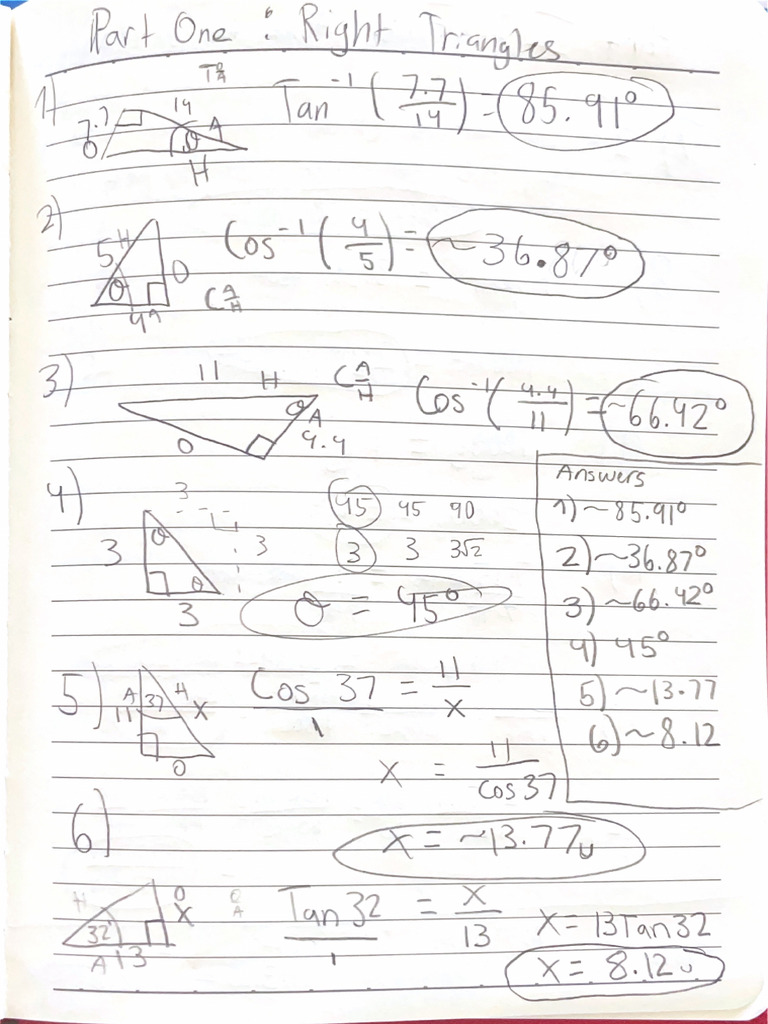 Part One : Right Triangles
1)
T O/A
7.7 O 14 A θ H
Tan⁻¹ (7.7/14) = 85.91°
2)
5 H O θ 4 A
C A/H
Cos⁻¹ (4/5) = ~36.87°
3)
11 H θ A 4.4 O
C A/H
Cos⁻¹ (4.4/11) = ~66.42°
4)
3 3 θ θ 3 3
45 45 90
3 3 3√2
θ = 45°
Answers
1) ~85.91°
2) ~36.87°
3) ~66.42°
4) 45°
5) ~13.77
6) ~8.12
5)
A 11 37 H X O
Cos 37/1 = 11/x
x = 11/cos 37
x = ~13.77u
6)
H 32 O X A 13
O/A
Tan 32/1 = x/13
x = 13Tan32
x = 8.12u